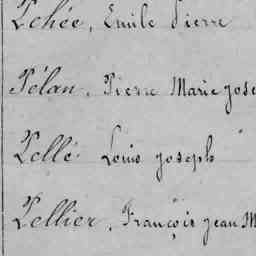 Pehée, Emile Pierre
Pélan, Pierre Marie Jose
Pellé Louis Joseph
Pellier, François Jean M